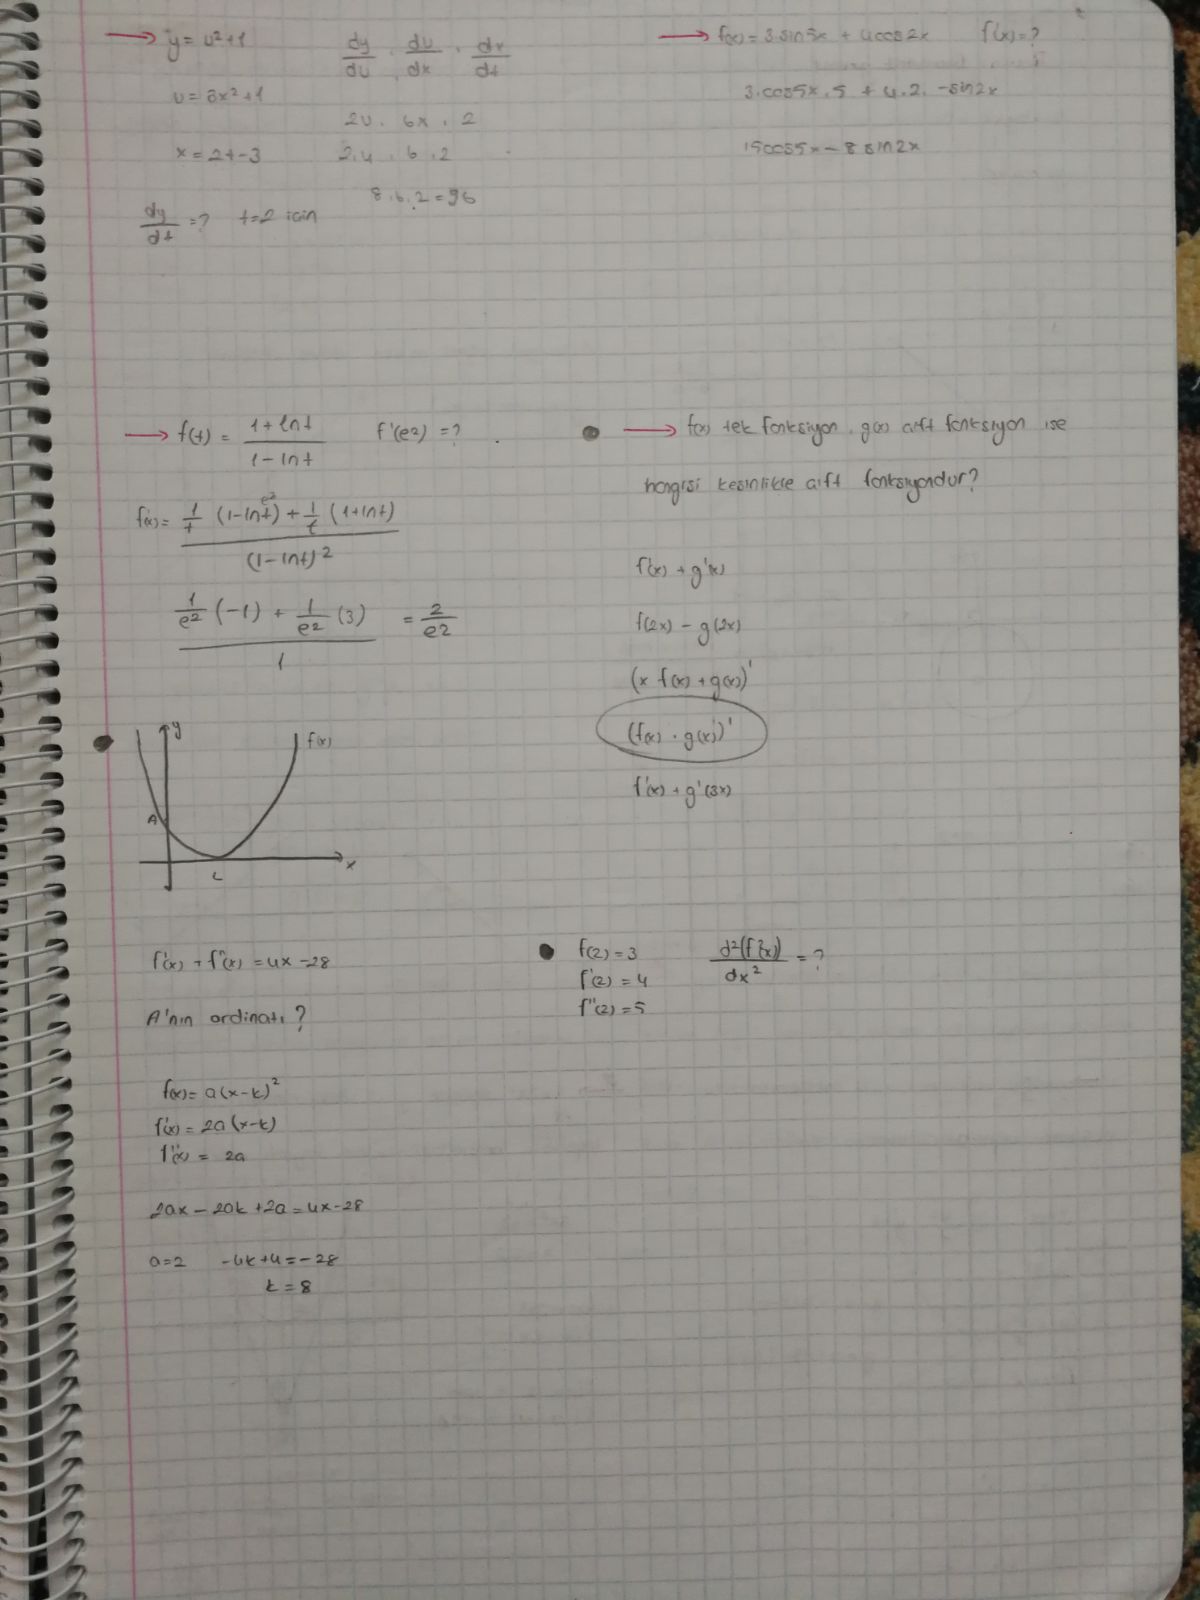 → y = u²+1
u = 3x²+1
x = 2t-3
dy/dt = ? t=2 için
dy/du . du/dx . dx/dt
2u . 6x . 2
2.4 . 6 . 2
8.6.2 = 96
→ f(x) = 3.sin5x + 4cos2x f'(x) = ?
3.cos5x.5 + 4.2.-sin2x
15cos5x - 8sin2x
→ f(t) = (1+lnt)/(1-lnt) f'(e2) = ?
f'(x) = (1/t (1-lnt) + 1/t (1+lnt))/(1-lnt)²
e²
(1/e2 (-1) + 1/e2 (3))/1 = 2/e2
→ f(x) tek fonksiyon, g(x) çift fonksiyon ise
hangisi kesinlikle çift fonksiyondur?
f'(x) + g'(x)
f(2x) - g(2x)
(x f(x) + g(x))'
(f(x) . g(x))'
f'(x) + g'(3x)
y
f(x)
A
x
f'(x) + f''(x) = 4x-28
A'nın ordinatı ?
f(x) = a(x-k)²
f'(x) = 2a(x-k)
f''(x) = 2a
2ax - 2ak + 2a = 4x-28
a=2 -4k+4 = -28
k = 8
f(2) = 3
f'(2) = 4
f''(2) = 5
d²(f²(x))/dx² = ?